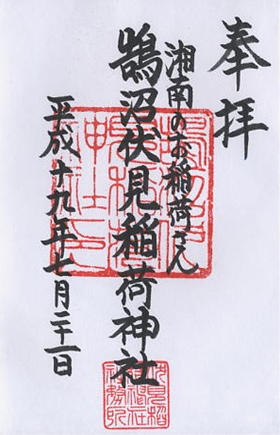 奉拝
湘南のお稲荷さん
鵠沼伏見稲荷神社
平成十九年七月二十一日